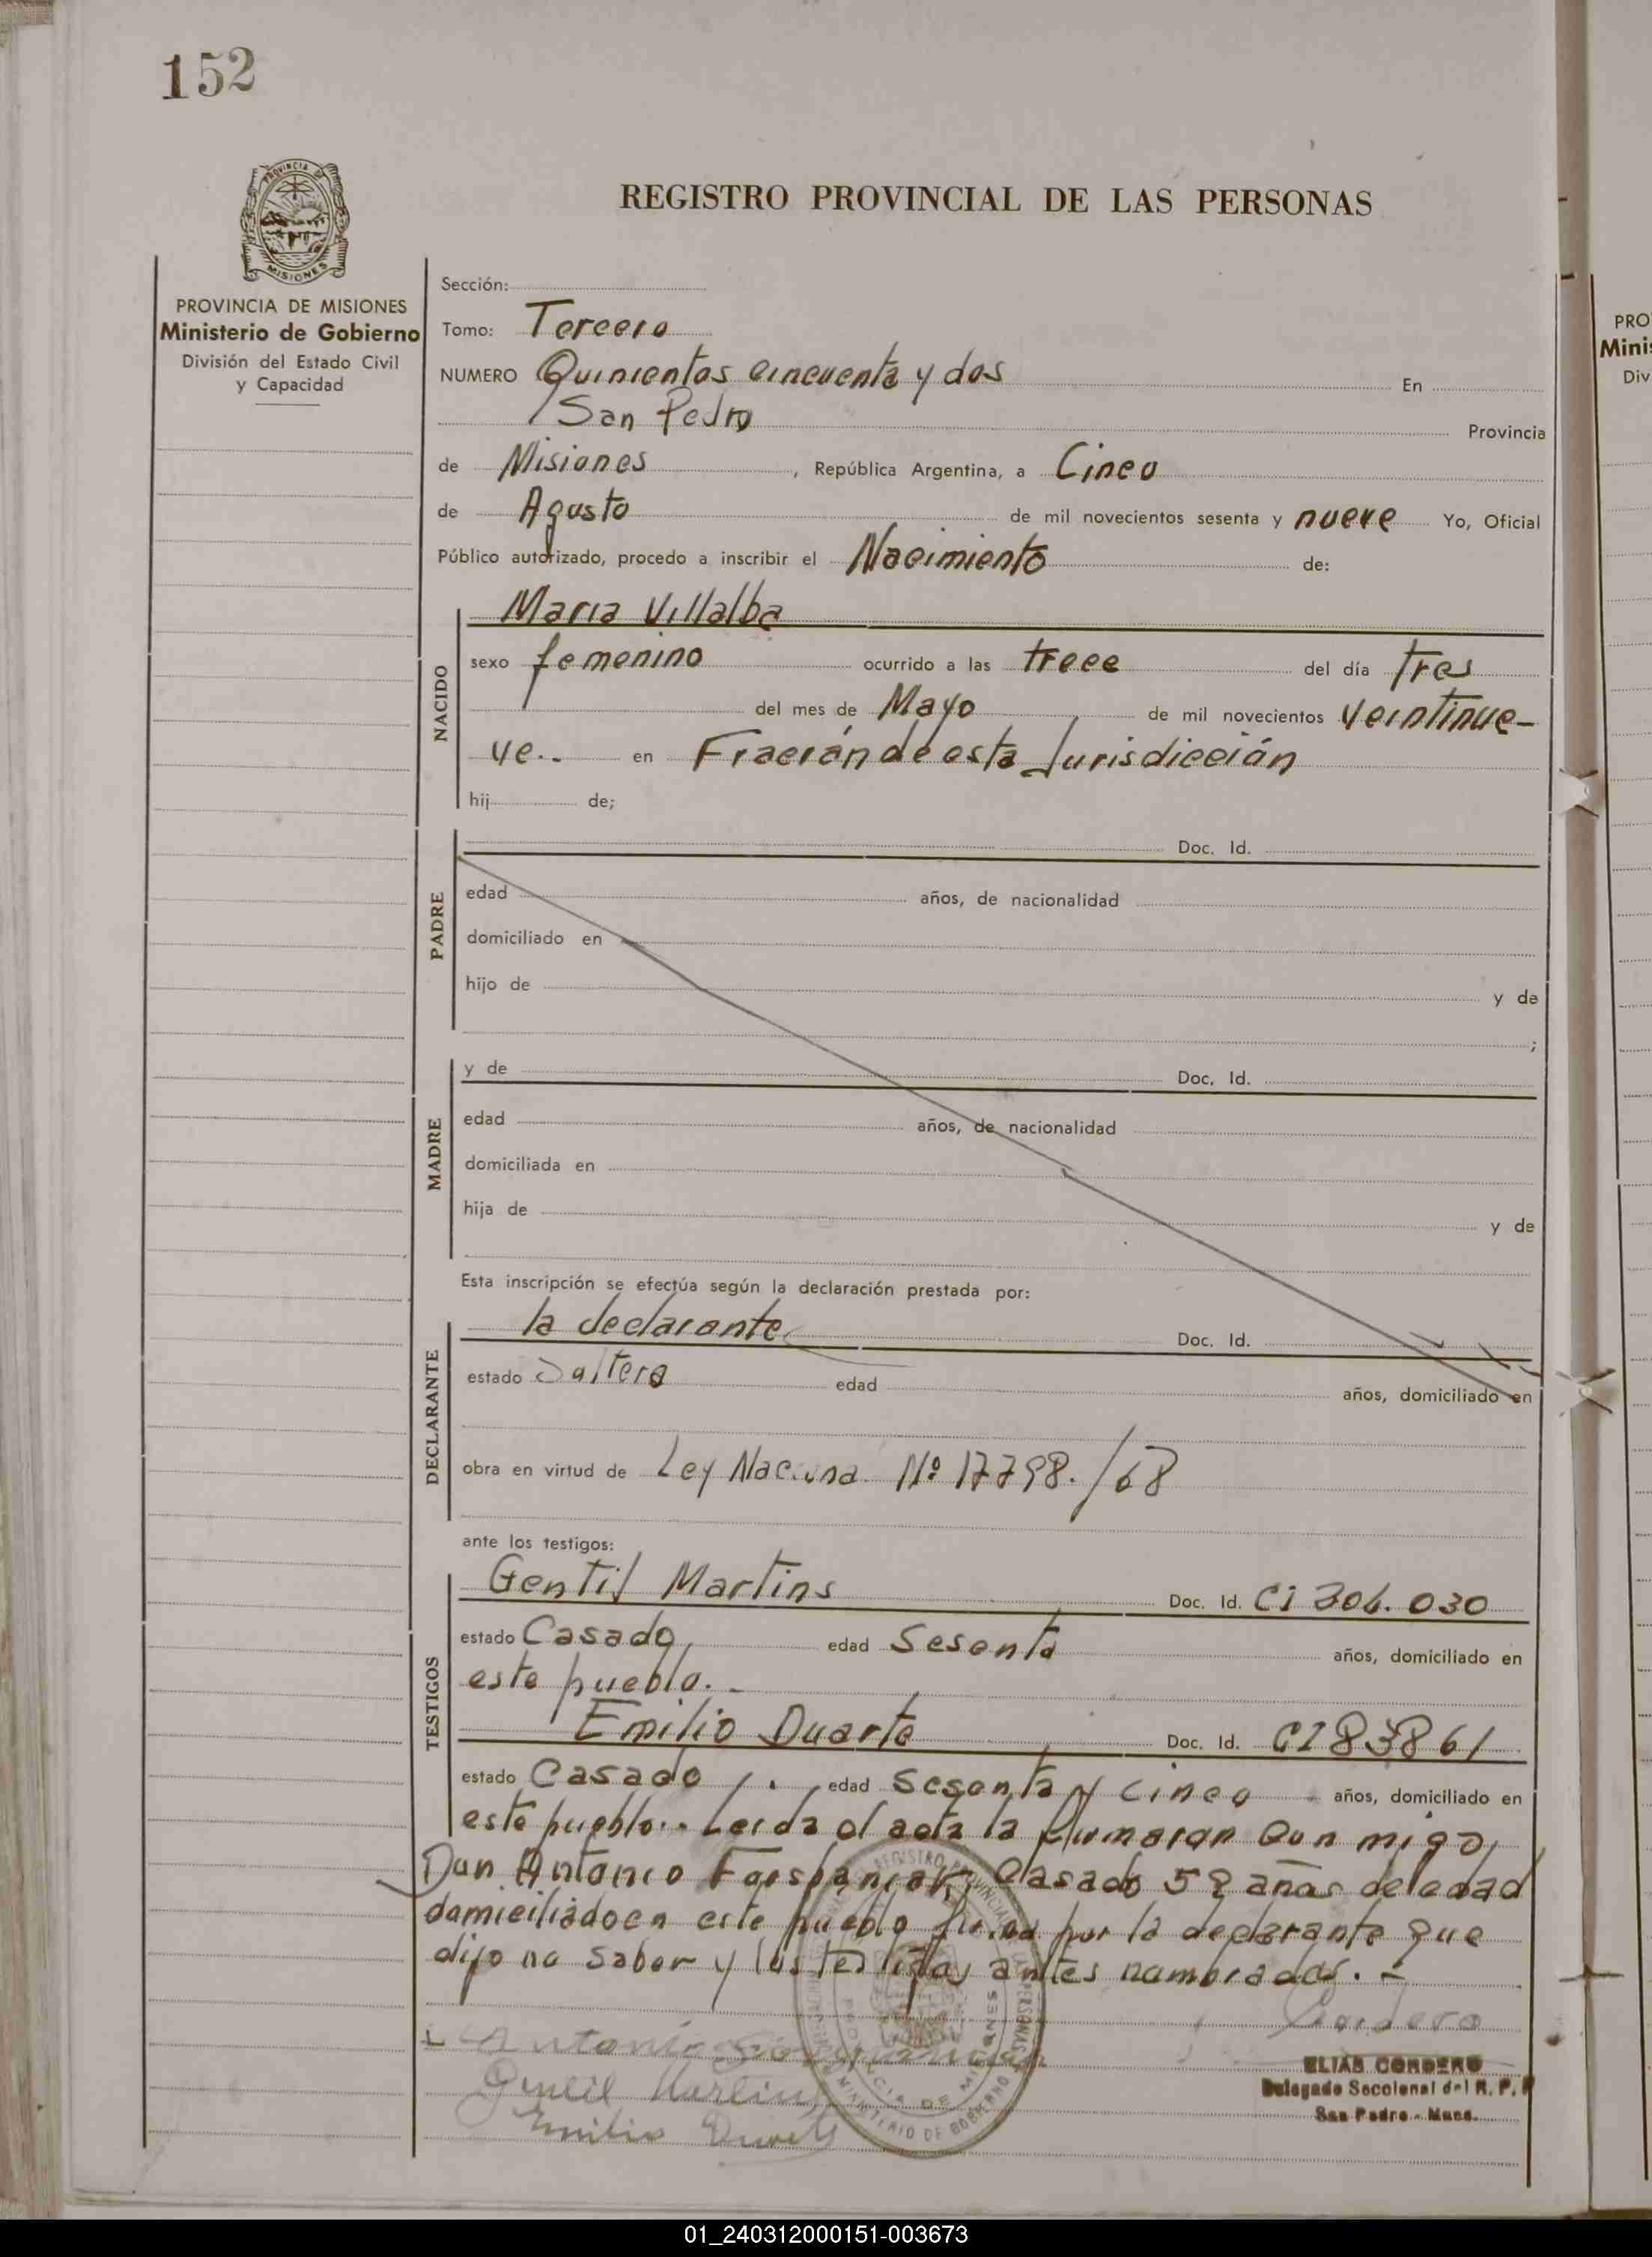 152
REGISTRO PROVINCIAL DE LAS PERSONAS
PROVINCIA DE MISIONES
Ministerio de Gobierno
División del Estado Civil
y Capacidad
Sección:
Tomo: Tercero
NUMERO Quinientos cincuenta y dos En
San Pedro Provincia
de Misiones, República Argentina, a Cinco
de Agosto de mil novecientos sesenta y nueve Yo, Oficial
Público autorizado, procedo a inscribir el Nacimiento de:
NACIDO
Maria Villalba
sexo femenino ocurrido a las trece del día tres
del mes de Mayo de mil novecientos veintinue-
ve.. en Fracrán de esta Jurisdicción
hij de;
PADRE
Doc. Id.
edad años, de nacionalidad
domiciliado en
hijo de y de
;
MADRE
y de Doc. Id.
edad años, de nacionalidad
domiciliada en
hija de y de
Esta inscripción se efectúa según la declaración prestada por:
DECLARANTE
la declarante Doc. Id.
estado Soltera edad años, domiciliado en
obra en virtud de Ley Naciona. Nº 17798./68
ante los testigos:
TESTIGOS
Gentil Martins Doc. Id. Ci 306.030
estado Casado, edad Sesenta años, domiciliado en
este pueblo. -
Emilio Duarte Doc. Id. CI 83861
estado Casado edad Sesenta y cinco años, domiciliado en
este pueblo.. Leida el acta la firmaran con migo,
Don Antonio Casado 58 años de edad
domiciliado en este pueblo por la declarante que
dijo no saber y los testigos antes nombrados. -
Cordero
Antonio
Gentil Martins
Emilio Duarte
ELIAS CORDERO
Delegado Seccional del R. P. P
San Pedro - Mnes.
PROVINCIA DE MISIONES
MINISTERIO DE GOBIERNO
PRO
Minis
Div
01_240312000151-003673